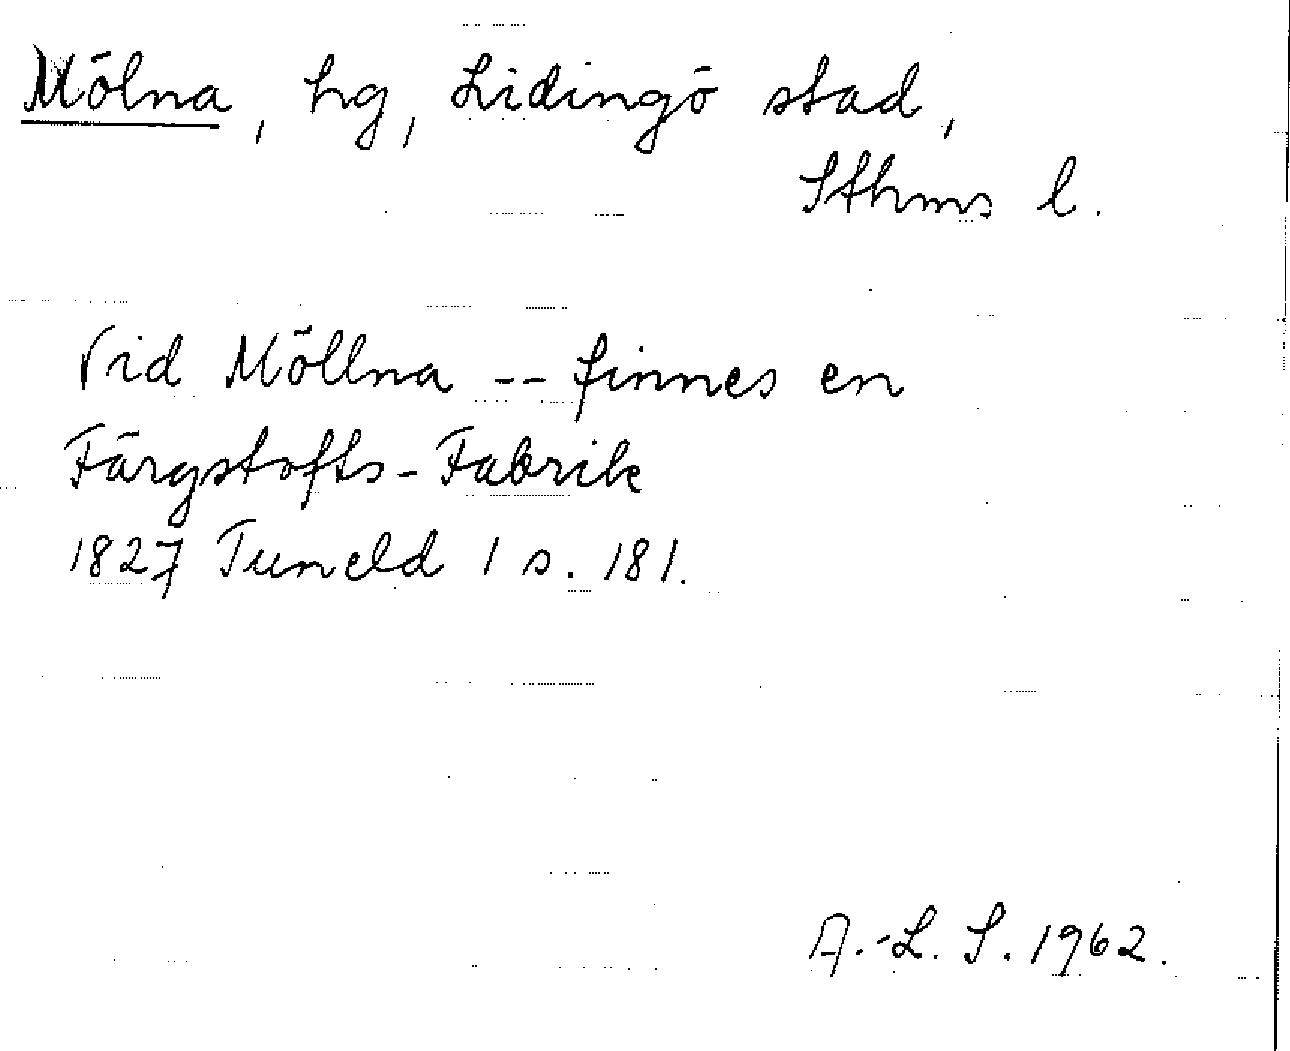 Mölna, hg, Lidingö stad,
Sthms l.
Vid Möllna -- finnes en
Färgstofts-Fabrik
1827 Tuneld 1 s. 181.
A.-L. S. 1962.